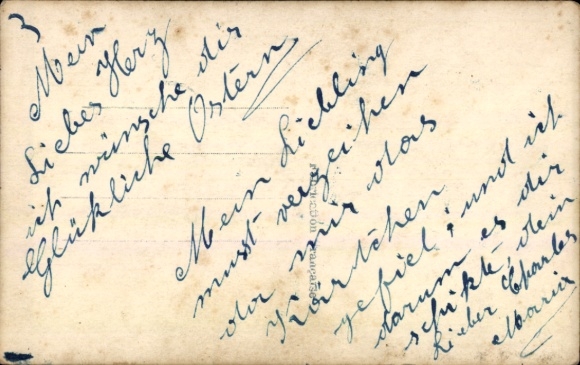 3
Mein
Liebes Herz
ich wünsche dir
Glükliche Ostern
Mein Liebling
musst verzeihen
da mir das
Kärtchen
gefiel, und ich
darum es dir
schikte, dein
Lieber Charles
Maria